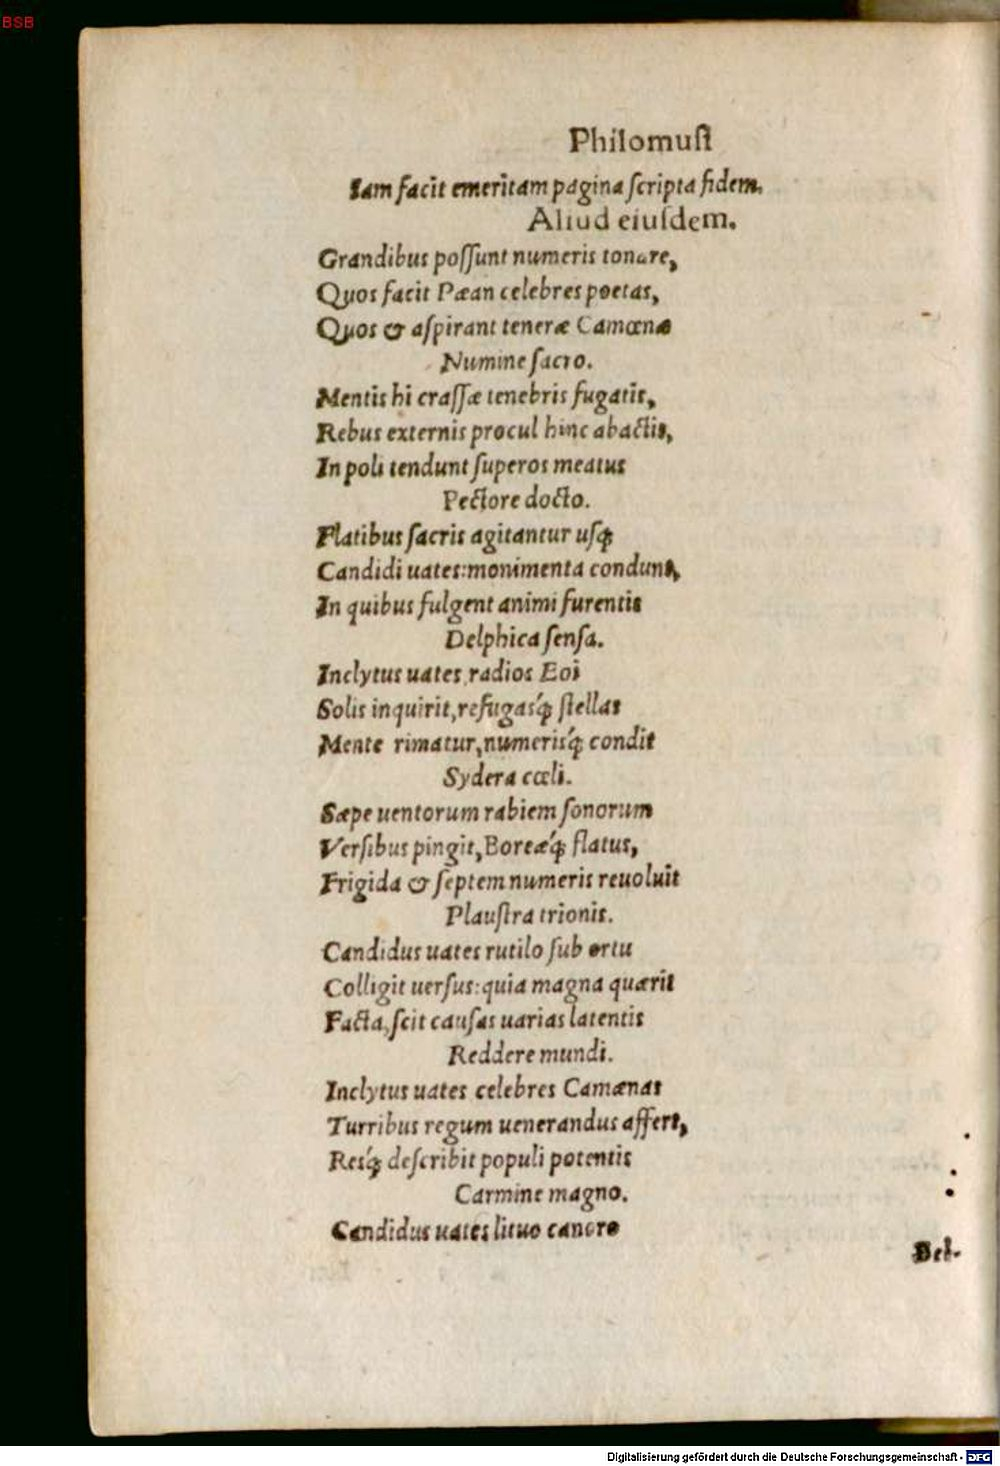 BSB
Philomusi
Iam facit emeritam pagina scripta fidem.
Aliud eiusdem.
Grandibus possunt numeris tonare,
Quos facit Pæan celebres poetas,
Quos & aspirant teneræ Camœnæ
Numine sacro.
Mentis hi crassæ tenebris fugatis,
Rebus externis procul hinc abactis,
In poli tendunt superos meatus
Pectore docto.
Flatibus sacris agitantur usq́;
Candidi uates: monimenta condunt,
In quibus fulgent animi furentis
Delphica sensa.
Inclytus uates, radios Eoi
Solis inquirit, refugasq́; stellas
Mente rimatur, numerisq́; condit
Sydera cœli.
Sæpe uentorum rabiem sonorum
Versibus pingit, Boreæq́; flatus,
Frigida & septem numeris reuoluit
Plaustra trionis.
Candidus uates rutilo sub ortu
Colligit uersus: quia magna quærit
Facta, scit causas uarias latentis
Reddere mundi.
Inclytus uates celebres Camœnas
Turribus regum uenerandus affert,
Resq́; describit populi potentis
Carmine magno.
Candidus uates lituo canoro
Bel-
Digitalisierung gefördert durch die Deutsche Forschungsgemeinschaft - DFG